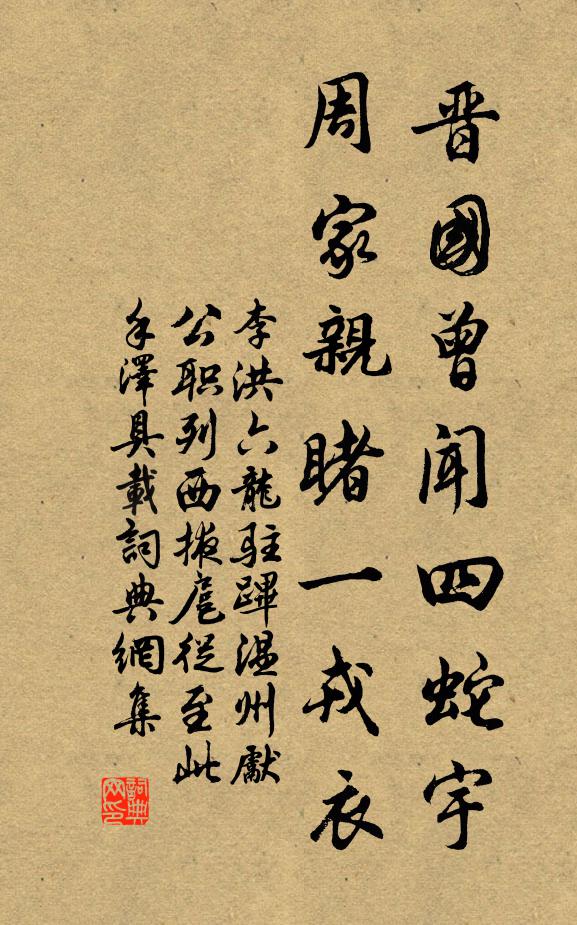 晋國曾闻四蛇宇
周家親睹一戎衣
李洪六龍驻蹕温州獻
公职列西掖扈從至此
手澤具載詞典網集
詞典网印